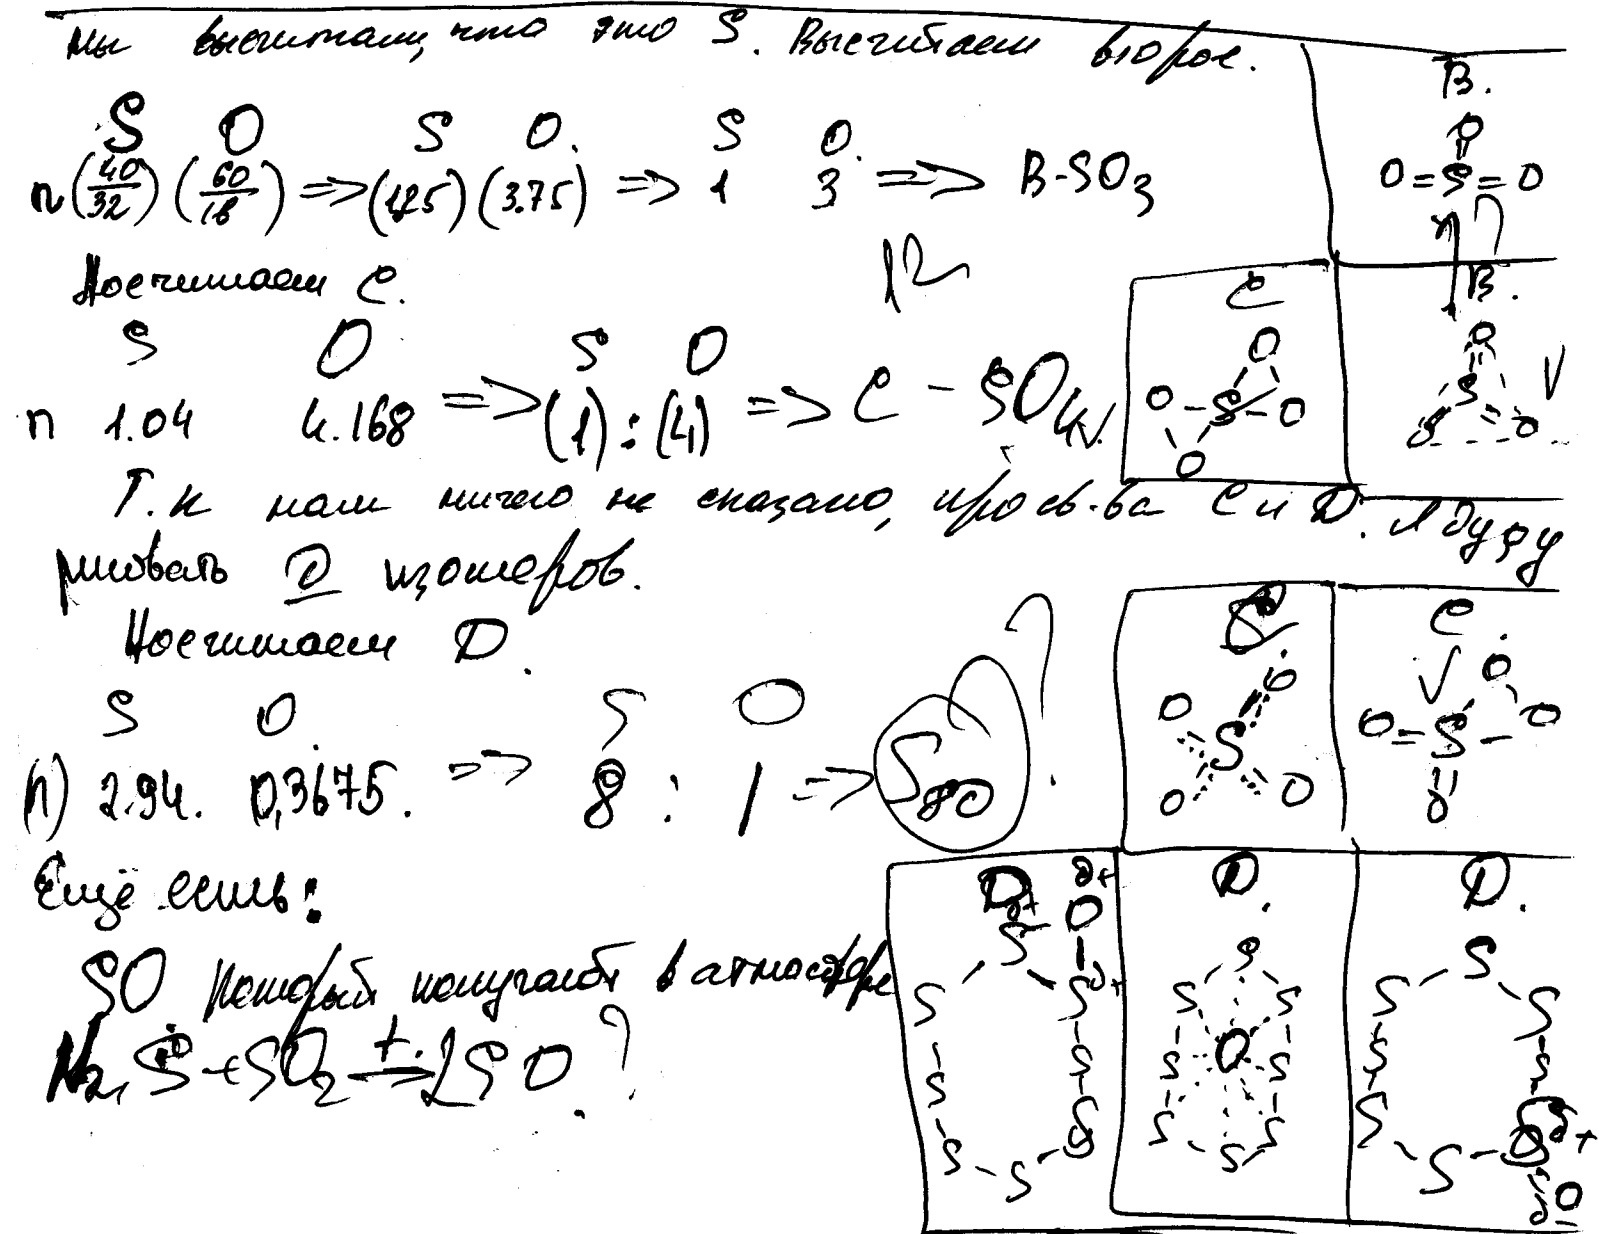 Мы высчитали, что это S. Высчитаем второе.
S O S O. S O.
n (40/32) (60/16) => (1,25) (3.75) => 1 3 => B-SO3
Посчитаем C.
S O S O
n 1.04 4.168 => (1) : (4) => C - SO4
Т.к нам ничего не сказано, про св-ва C и D. Я буду
рисовать D изомеров.
Посчитаем D.
S O. S O
(n) 2.94. 0,3675. => 8 : 1 => S8O ?
Ещё есть:
SO который получают в атмосфере
N2, S + SO2 t. 2SO. ?
B.
O
O=S=O
B.
O
S
O O
C
O
O-S-O
O
C
O O
S
O O
C.
O
O=S-O
O
D δ+
δ+ O
S S δ+
S S
S S
S S
D.
S
S S
S O S
S S
S
D.
S
S S
S S
S
S δ+
O
δ-